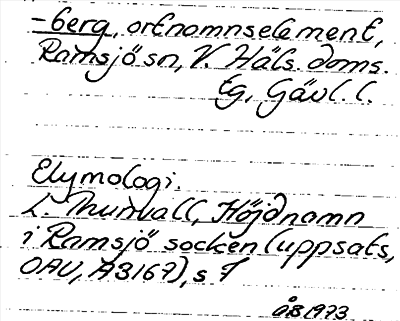 -berg, ortnamnselement,
Ramsjö sn, V. Häls. doms.
Eg, Gävl. l.
Etymologi.
L. Thunvall, Höjdnamn
i Ramsjö socken (uppsats,
OAU, A3167), s 7
ÅB 1973